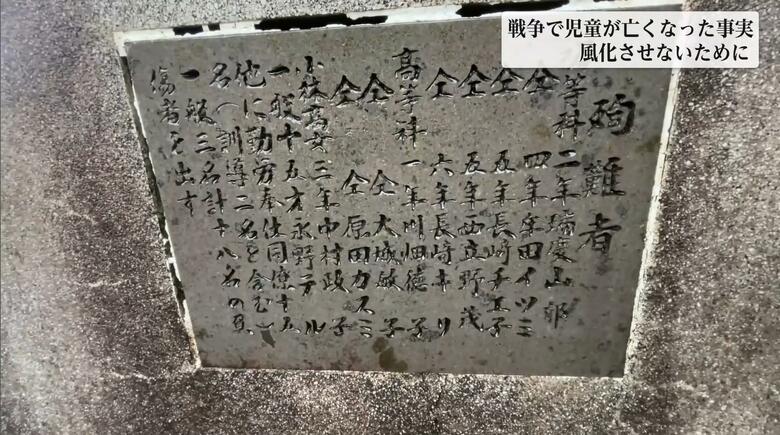 戦争で児童が亡くなった事実
風化させないために
殉難者
等科二年瑞慶山 郎
仝 四年 田イツミ
仝 五年長崎チエ子
仝 五年西立野茂
仝 六年長崎キリ
高等科一年川畑徳子
仝 仝 大城敏子
仝 仝 原田カスミ
小林高女三年中村政子
一般十五才永野テル
他に勤労奉仕同僚十五
名(訓導二名を含む)
一般三名計十八名の負
傷者を出す